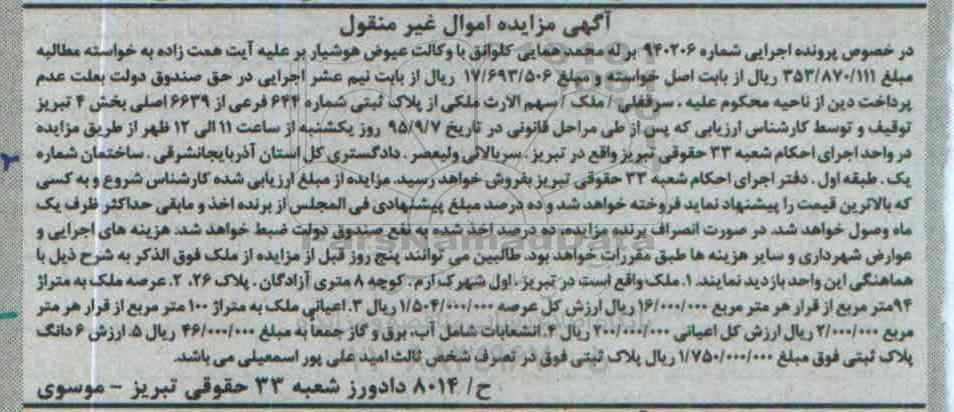 آگهی مزایده اموال غیر منقول
در خصوص پرونده اجرایی شماره ۹۴۰۲۰۶ بر له محمد همایی کلوانق با وکالت عیوض هوشیار بر علیه آیت همت زاده به خواسته مطالبه
مبلغ ۳۵۳/۸۷۰/۱۱۱ ریال از بابت اصل خواسته و مبلغ ۱۷/۶۹۳/۵۰۶ ریال از بابت نیم عشر اجرایی در حق صندوق دولت بعلت عدم
پرداخت دین از ناحیه محکوم علیه ، سرقفلی / ملک / سهم الارث ملکی از پلاک ثبتی شماره ۶۴۴ فرعی از ۶۶۳۹ اصلی بخش ۴ تبریز
توقیف و توسط کارشناس ارزیابی که پس از طی مراحل قانونی در تاریخ ۹۵/۹/۷ روز یکشنبه از ساعت ۱۱ الی ۱۲ ظهر از طریق مزایده
در واحد اجرای احکام شعبه ۳۳ حقوقی تبریز واقع در تبریز . سربالائی ولیعصر . دادگستری کل استان آذربایجانشرقی . ساختمان شماره
یک . طبقه اول . دفتر اجرای احکام شعبه ۳۳ حقوقی تبریز بفروش خواهد رسید. مزایده از مبلغ ارزیابی شده کارشناس شروع و به کسی
که بالاترین قیمت را پیشنهاد نماید فروخته خواهد شد و ده درصد مبلغ پیشنهادی فی المجلس از برنده اخذ و مابقی حداکثر ظرف یک
ماه وصول خواهد شد. در صورت انصراف برنده مزایده، ده درصد اخذ شده به نفع صندوق دولت ضبط خواهد شد. هزینه های اجرایی و
عوارض شهرداری و سایر هزینه ها طبق مقررات خواهد بود. طالبین می توانند پنج روز قبل از مزایده از ملک فوق الذکر به شرح ذیل با
هماهنگی این واحد بازدید نمایند. ۱. ملک واقع است در تبریز . اول شهرک ارم . کوچه ۸ متری آزادگان . پلاک ۲۶. ۲. عرصه ملک به متراژ
۹۴متر مربع از قرار هر متر مربع ۱۶/۰۰۰/۰۰۰ ریال ارزش کل عرصه ۱/۵۰۴/۰۰۰/۰۰۰ ریال ۳. اعیانی ملک به متراژ ۱۰۰ متر مربع از قرار هر متر
مربع ۲/۰۰۰/۰۰۰ ریال ارزش کل اعیانی ۲۰۰/۰۰۰/۰۰۰ ریال ۴. انشعابات شامل آب، برق و گاز جمعاً به مبلغ ۴۶/۰۰۰/۰۰۰ ریال ۵. ارزش ۶ دانگ
پلاک ثبتی فوق مبلغ ۱/۷۵۰/۰۰۰/۰۰۰ ریال پلاک ثبتی فوق در تصرف شخص ثالث امید علی پور اسمعیلی می باشد.
ح/ ۸۰۱۴ دادورز شعبه ۳۳ حقوقی تبریز - موسوی
ParsNamadData